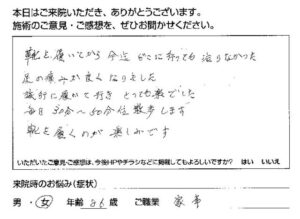 本日はご来院いただき、ありがとうございます。
施術のご意見・ご感想を、ぜひお聞かせください。
靴を履いてから今迄どこに行っても治りなかった
足の痛みが良くなりました
旅行に履いて行きとっても楽でした
毎日30分〜50分位散歩します
靴を履くのが楽しみです
いただいたご意見・ご感想は、今後HPやチラシなどに掲載してもよろしいですか？ はい いいえ
来院時のお悩み(症状)
男・女 年齢 86歳 ご職業 家事